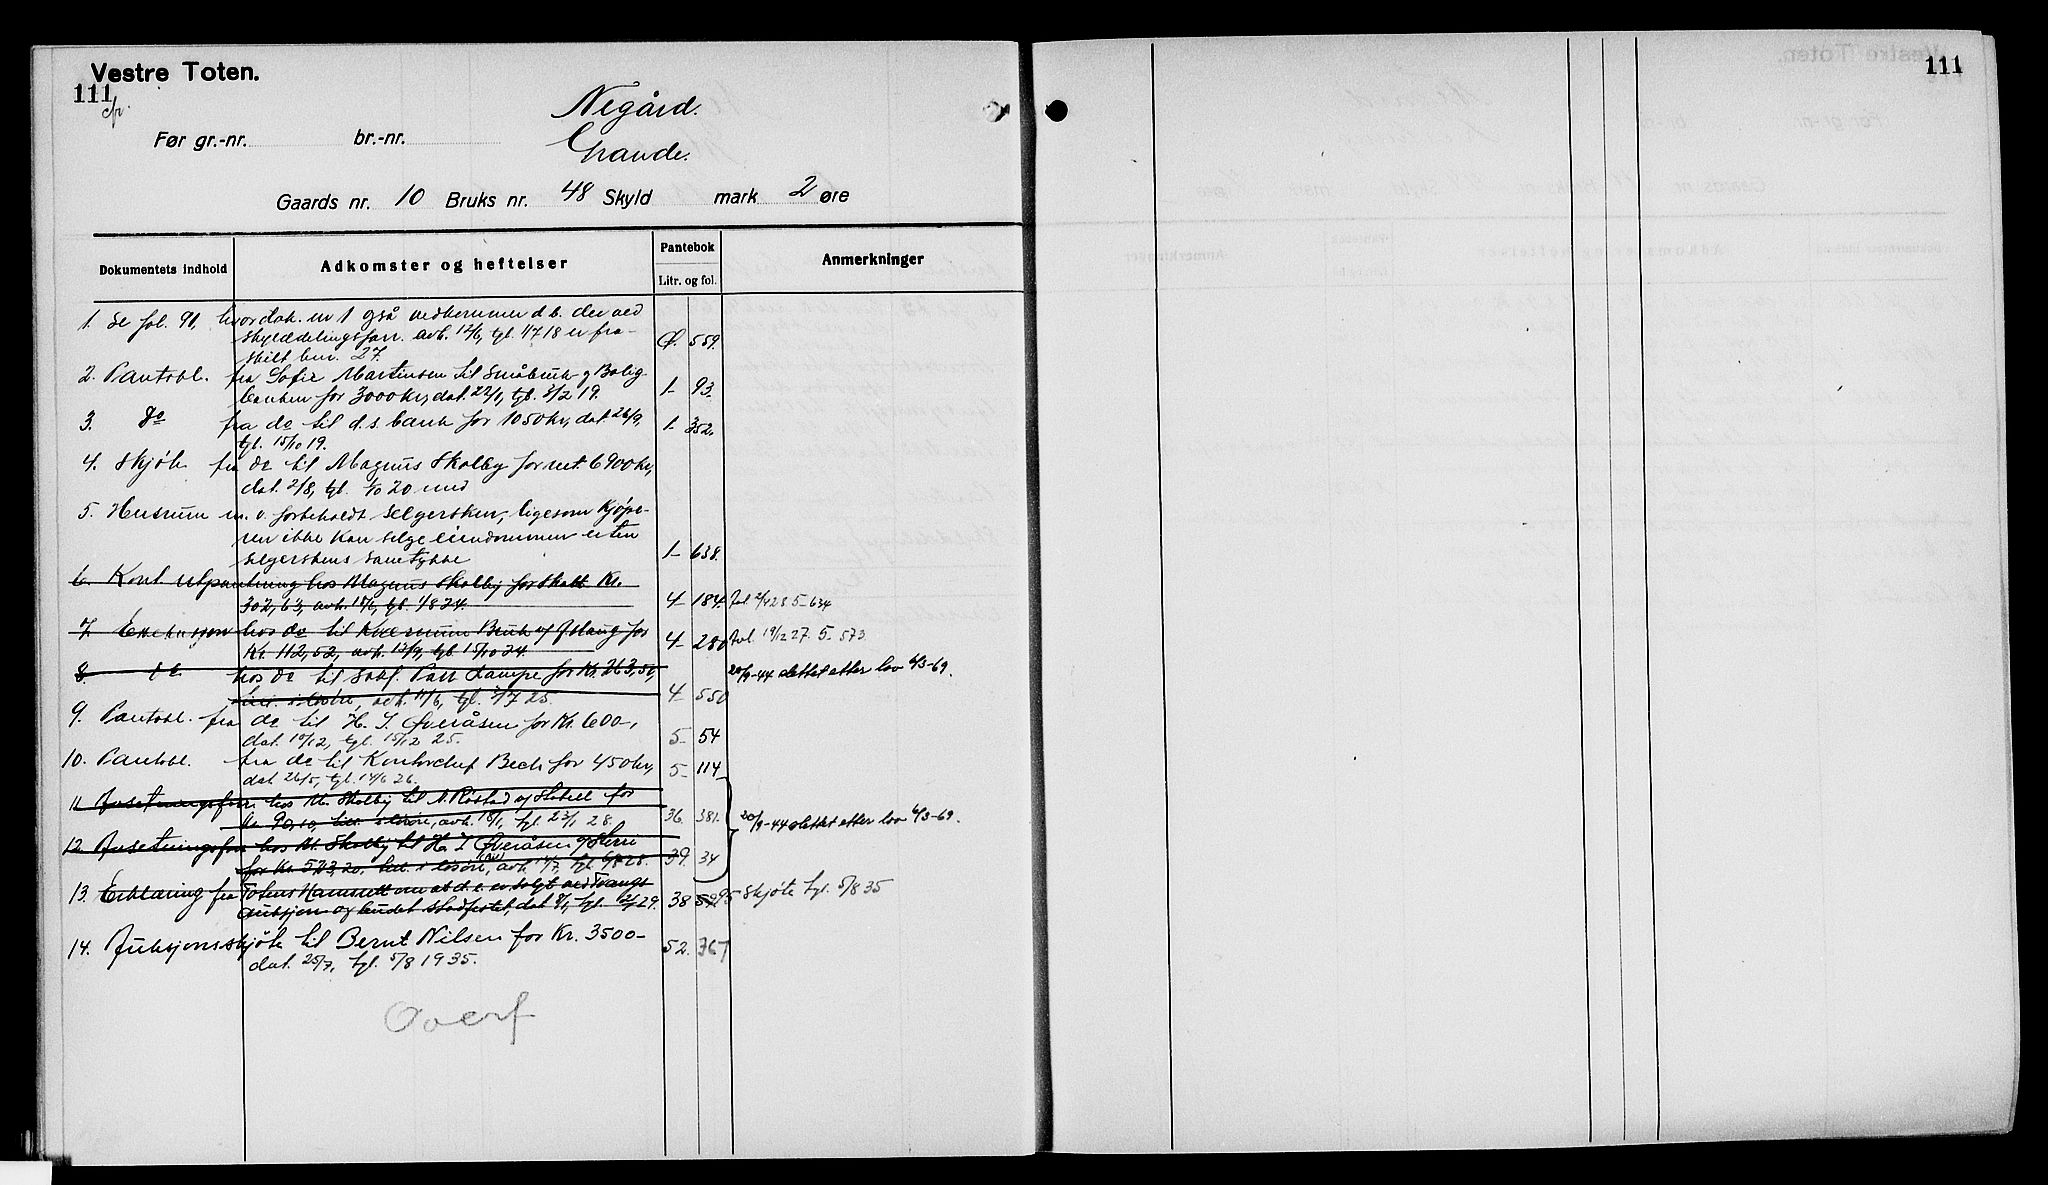 Vestre Toten.
111
Negård.
Før gr.-nr. br.-nr.
Grande.
Gaards nr. 10 Bruks nr. 48 Skyld mark 2 øre
Dokumentets indhold Adkomster og heftelser Pantebok Litr. og fol. Anmerkninger
1. Se fol. 91, hvor dok. nr 1 også vedkommer d b. der ved
skylddelingsforr. avh. 12/6, tgl. 1/7 18 er fra-
skilt bnr. 27. 559.
2. Pantobl. fra Sofie Martinsen til Småbruk og Bolig-
banken for 3000 kr, dat. 22/1, tgl. 3/2 19. 1- 93.
3. do fra do til d. s. bank for 1050 kr, dat. 26/9, 1- 352.
tgl. 15/10 19.
4. Skjöte fra do til Magnus Skolby for 6900 kr,
dat. 2/8, tgl. 20 med
5. Husrum m. v. forbeholdt selgersken, ligesom kjøpe-
ren ikke kan selge eiendommen uten
selgerskens samtykke 1- 638.
6. Kont utpantning hos Magnus Skolby for skatt Kr.
302,63, avh. 18/6, tgl. 1/8 24. 4- 184. 5-634
7. Eksekusjon hos do til Kværnum Bruk og Aslaug for
Kr. 112,52, avh. 12/9, tgl. 15/10 24. 4- 280 Avl. 19/12 27. 5- 573.
8. do hos do til Sakf. Paul Lampe for Kr. 263,50,
i løsøre, avh. 11/6, tgl. 1/7 25. 4- 550 20/9-44 slettet etter lov 4/3-69.
9. Pantobl. fra do til H. I. Øveråsen for Kr. 600-,
dat. 10/12, tgl. 15/12 25. 5- 54
10. Pantobl. fra do til Kontorchef Bech for 450 kr, 5- 114
dat. 26/5, tgl. 14/6 26.
11 Avsetningsforr. hos M. Skolby til A. Røstad og Hotell for
kr 90,10, løsøre, avh. 18/1, tgl. 23/1 28. 36. 381. 20/9-44 slettet etter lov 4/3-69.
12. Avsetningsforr hos M. Skolby til H. I. Øveråsen
for Kr. 523,20. i løsøre, avh. 14/7, tgl. 6/8 28. 39. 34
13. Erklæring fra Totens Namsrett om at d. e. er solgt ved tvangs
auksjon og budet stadfestet, dat 8/1, tgl. 12/1 29. 38 595 Skjøte tgl. 5/8 35
14. Auksjonsskjöte til Bernt Nilsen for Kr. 3500- 52. 767
dat. 25/7, tgl. 5/8 1935.
Overf
111